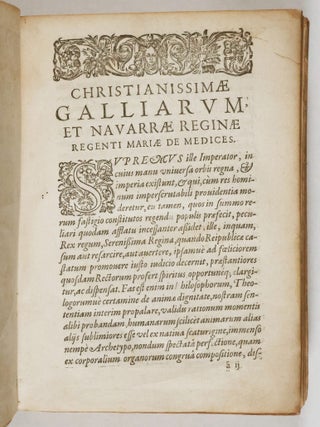 CHRISTIANISSIMÆ
GALLIARVM,
ET NAVARRÆ REGINÆ
REGENTI MARIÆ DE MEDICES.
SVPREMVS ille Imperator, in
cuius manu vniuersa orbi regna, &
imperia existunt, & qui, cùm res homi-
num imperscrutabili prouidentia mo-
deretur, eu tamen, quos in summo rerum
fastigio constitutos regendis populis præfecit, pecu-
liari quodam afflatu incessanter assidet, ille, inquam,
Rex regum, Serenissima Regina, quando Reipublicæ ca-
sum aut resarcire, aut auertere, ipsamue ad fœliciorem
statum promouere iusto iudicio decernit, præstantiores
quosdam Rectorum profert spiritus opportunè, clargi-
tur, ac dispensat. Fas est enim in Philosophorum, Theo-
logorumue certamine de anima dignitate, nostram sen-
tentiam interim propalare, validis rationum momentis
alibi probandam, humanarum scilicet animarum alias
alijs sublimiores esse vel ex natiua scaturigine, immenso
nempè Archetypo, nondum spectata perfectione, quàm
ex corporalium organorum congruâ compositione, dis-
ã ij